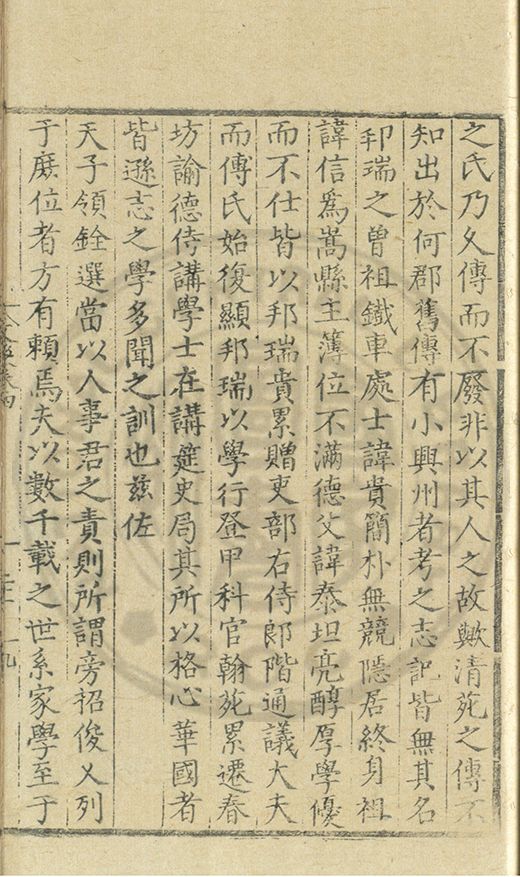 之氏乃久傳而不廢非以其人之故歟清苑之傳不
知出於何郡舊傳有小興州者考之志記皆無其名
邦瑞之曾祖鐵車處士諱貴簡朴無競隱居終身祖
諱信爲嵩縣主簿位不滿德父諱泰坦亮醇厚學優
而不仕皆以邦瑞貴累贈吏部右侍郎階通議大夫
而傳氏始復顯邦瑞以學行登甲科官翰苑累遷春
坊諭德侍講學士在講筵史局其所以格心華國者
皆遜志之學多聞之訓也茲佐
天子領銓選當以人事君之責則所謂旁招俊乂列
于庶位者方有頼焉夫以數千載之世系家學至于